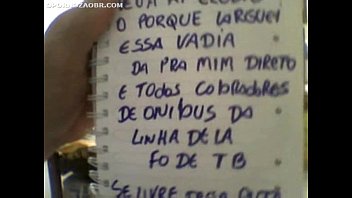 O PORQUE LARGUEI
ESSA VADIA
DA PRA MIM DIRETO
E TODOS COBRADORES
DE ONIBUS DA
LINHA DE LA
FO DE TB
SE LIVRE